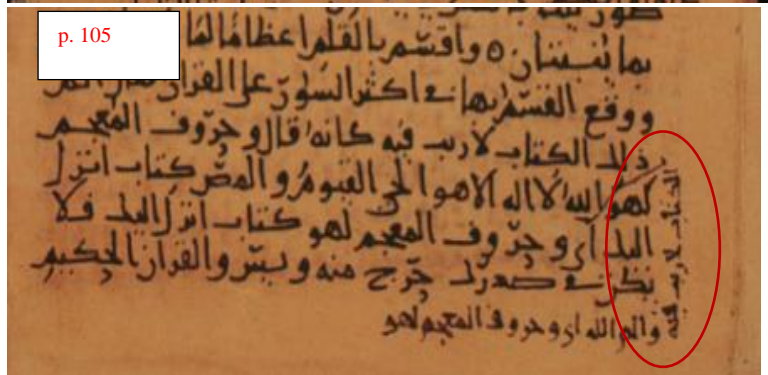 p. 105
بما ينبتان ٥ واقسم بالقلم اعظاما لما
ووقع القسم بها في اكثر السور على القران فقال الم
ذلك الكتاب لا ريب فيه كانه قال وحروف المعجم
لهو الله لا اله الا هو الحي القيوم والمص كتاب انزل
اليك اي وحروف المعجم لهو كتاب انزل اليك فلا
يكن في صدرك حرج منه ويس والقران الحكيم
الكتاب لا ريب فيه
والم الله اي وحروف المعجم لهو